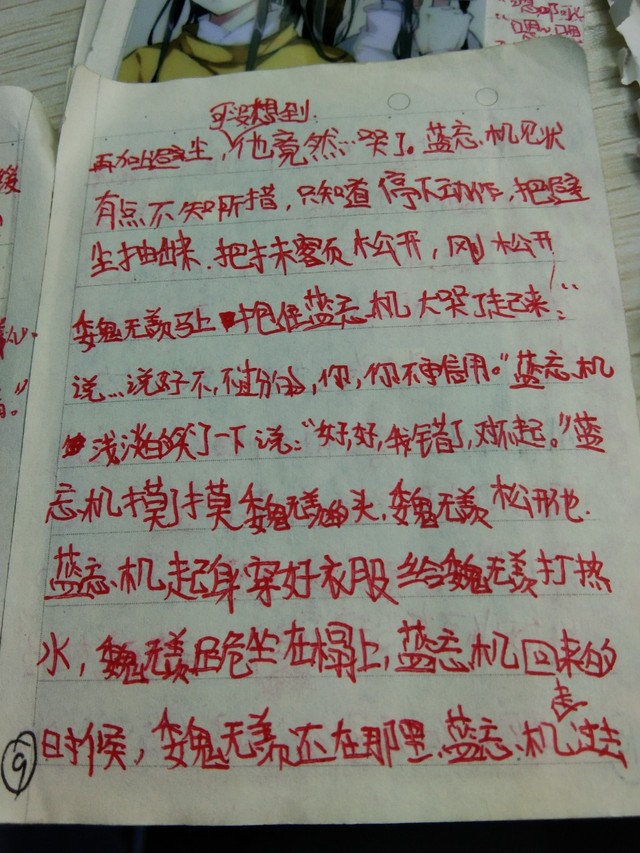 可没想到
再加避尘，他竟然…哭了。蓝忘机见状
有点不知所措，只知道停下动作，把避
尘抽出来.把抹额松开，刚松开
魏无羡马上抱住蓝忘机大哭了起来："
说…说好不,不过分的,你,你不守信用。"蓝忘机
浅淡的笑了一下说："好,好,我错了,对不起。"蓝
忘机摸了摸魏无羡的头,魏无羡松开他.
蓝忘机起身穿好衣服给魏无羡打热
水，魏无羡跪坐在榻上,蓝忘机回来的
走
时候，魏无羡还在那里.蓝忘机过去
9